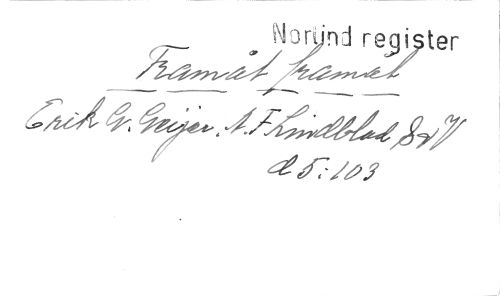 Norlind register
Framåt framåt
Erik G. Geijer. A. F Lindblad S o V
d 5:103